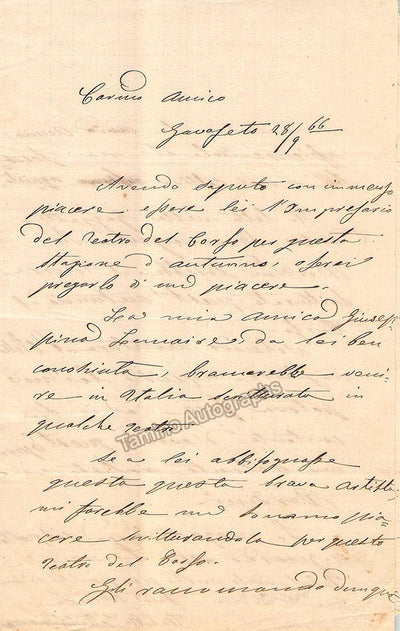 Carmo Amico
Gavaseto 28/9 66
Avendo saputo con immenso
piacere essere lei l'Impresario
del Teatro del Corso per questa
stagione d'autunno, oserei
pregarlo d'un piacere.
La mia amica Giusep=
pina Lemaire, da lei ben
conosciuta, bramerebbe veni=
re in Italia scritturata in
qualche teatro
Tamino Autographs
Se a lei abbisognasse
questa questa brava artista
mi farebbe un sommo pia=
cere scritturandola per questo
teatro del Corso.
Gli raccomando dunque